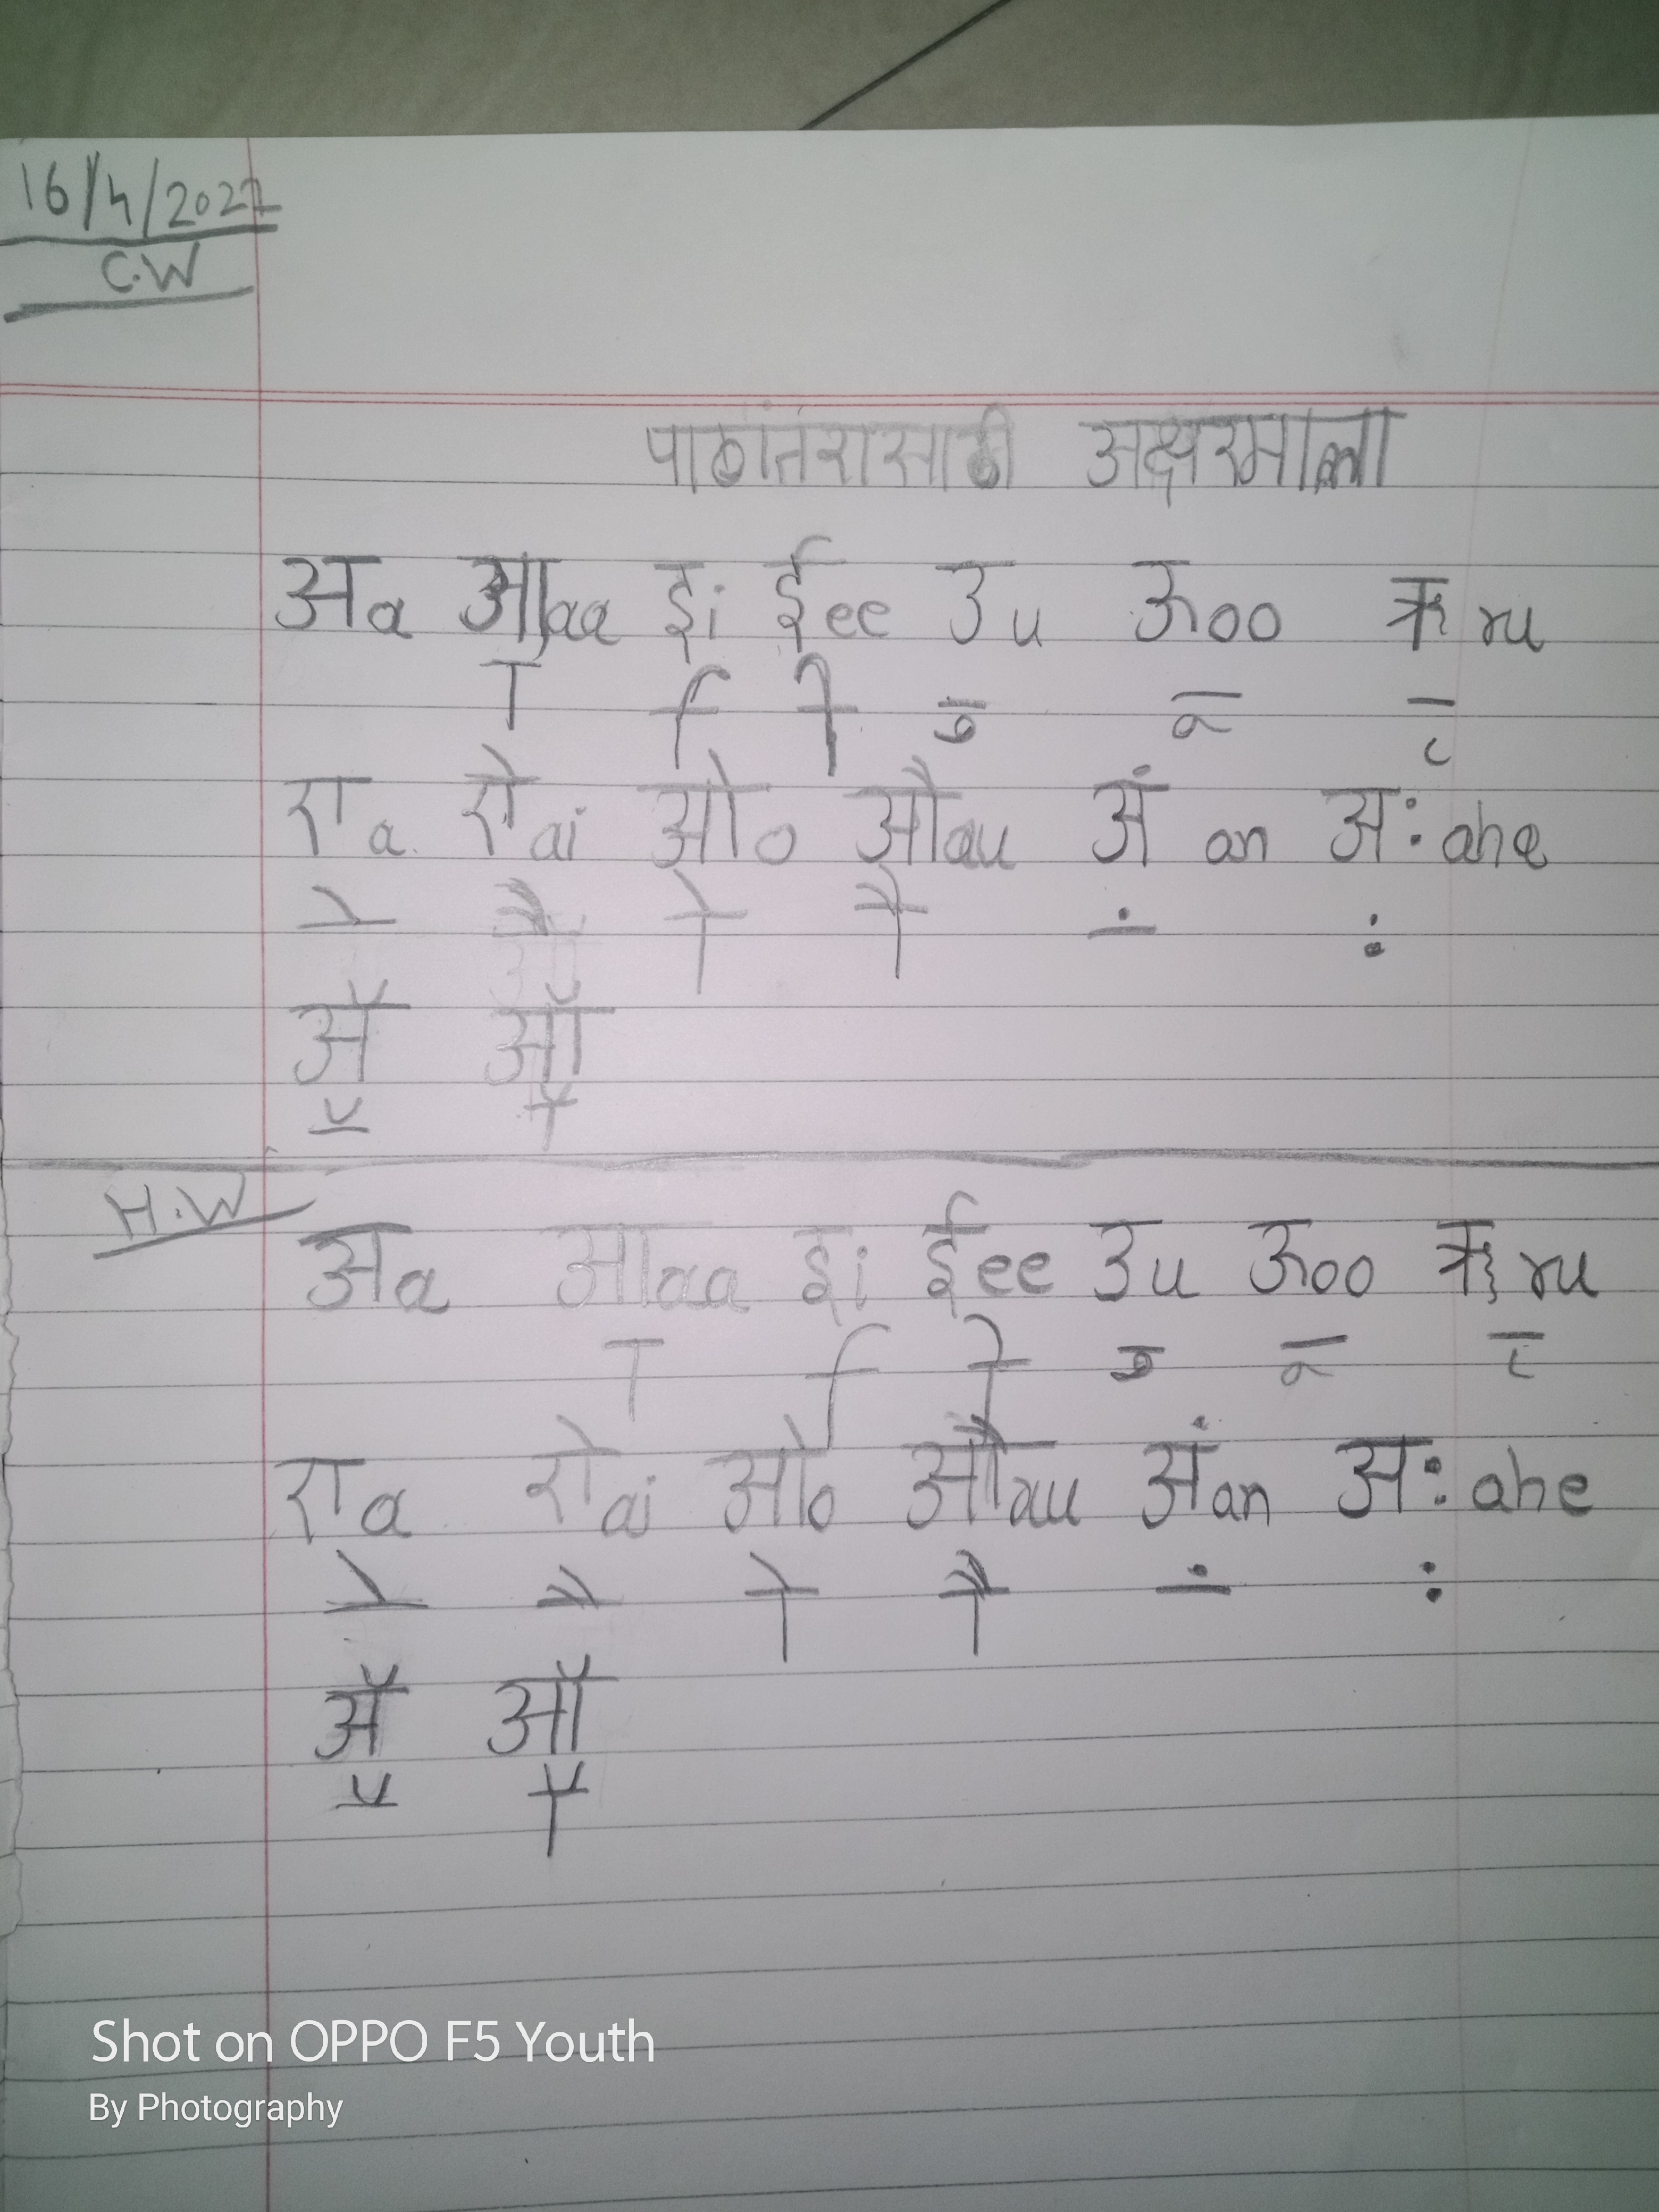 16/4/2021
C.W
पाठांतरासाठी अक्षरमाला
अ a आ aa इ i ई ee उ u ऊ oo ऋ ru
ा ि ी ु ू ृ
ए a ऐ ai ओ o औ au अं an अः ahe
े ै ो ौ ं ः
ॲ ऑ
ॅ ॉ
H.W
अ a आ aa इ i ई ee उ u ऊ oo ऋ ru
ा ि ी ु ू ृ
ए a ऐ ai ओ o औ au अं an अः ahe
े ै ो ौ ं ः
ॲ ऑ
ॅ ॉ
Shot on OPPO F5 Youth
By Photography